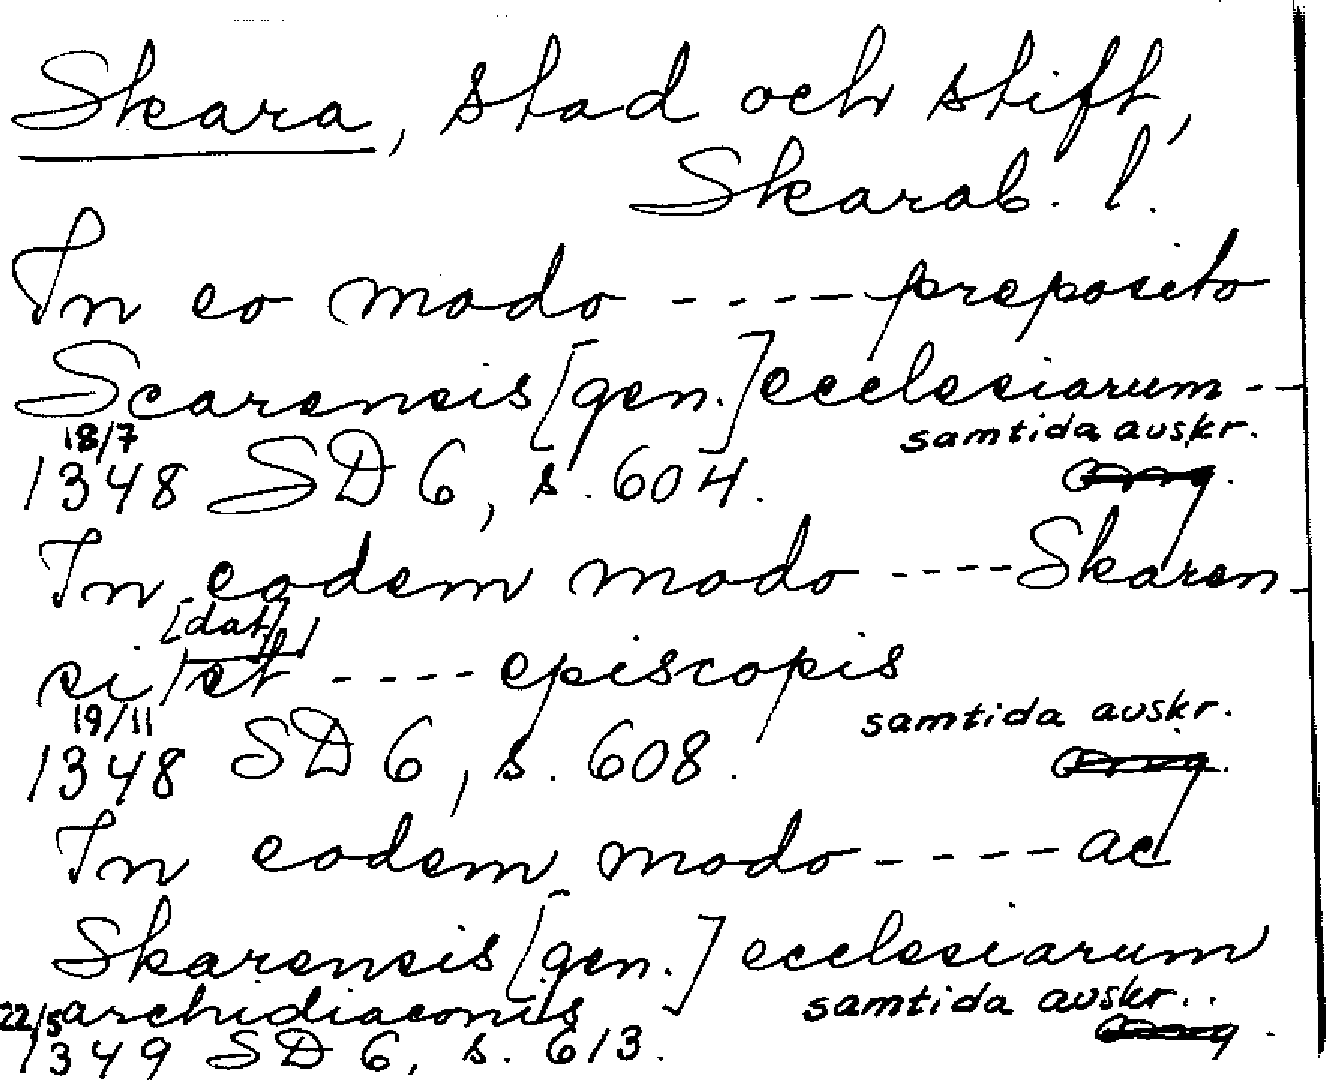 Skara, stad och stift,
Skarab. l.
In eo modo - - - - preposito
Scarensis [gen.] ecclesiarum - -
18/7 samtida avskr.
1348 SD 6, s. 604.
In eodem modo - - - - Skaren-
[dat]
si/et - - - - episcopis
19/11 samtida avskr.
1348 SD 6, s. 608.
In eodem modo - - - - ac
Skarensis [gen.] ecclesiarum
22/5 archidiaconis samtida avskr..
1349 SD 6, s. 613.